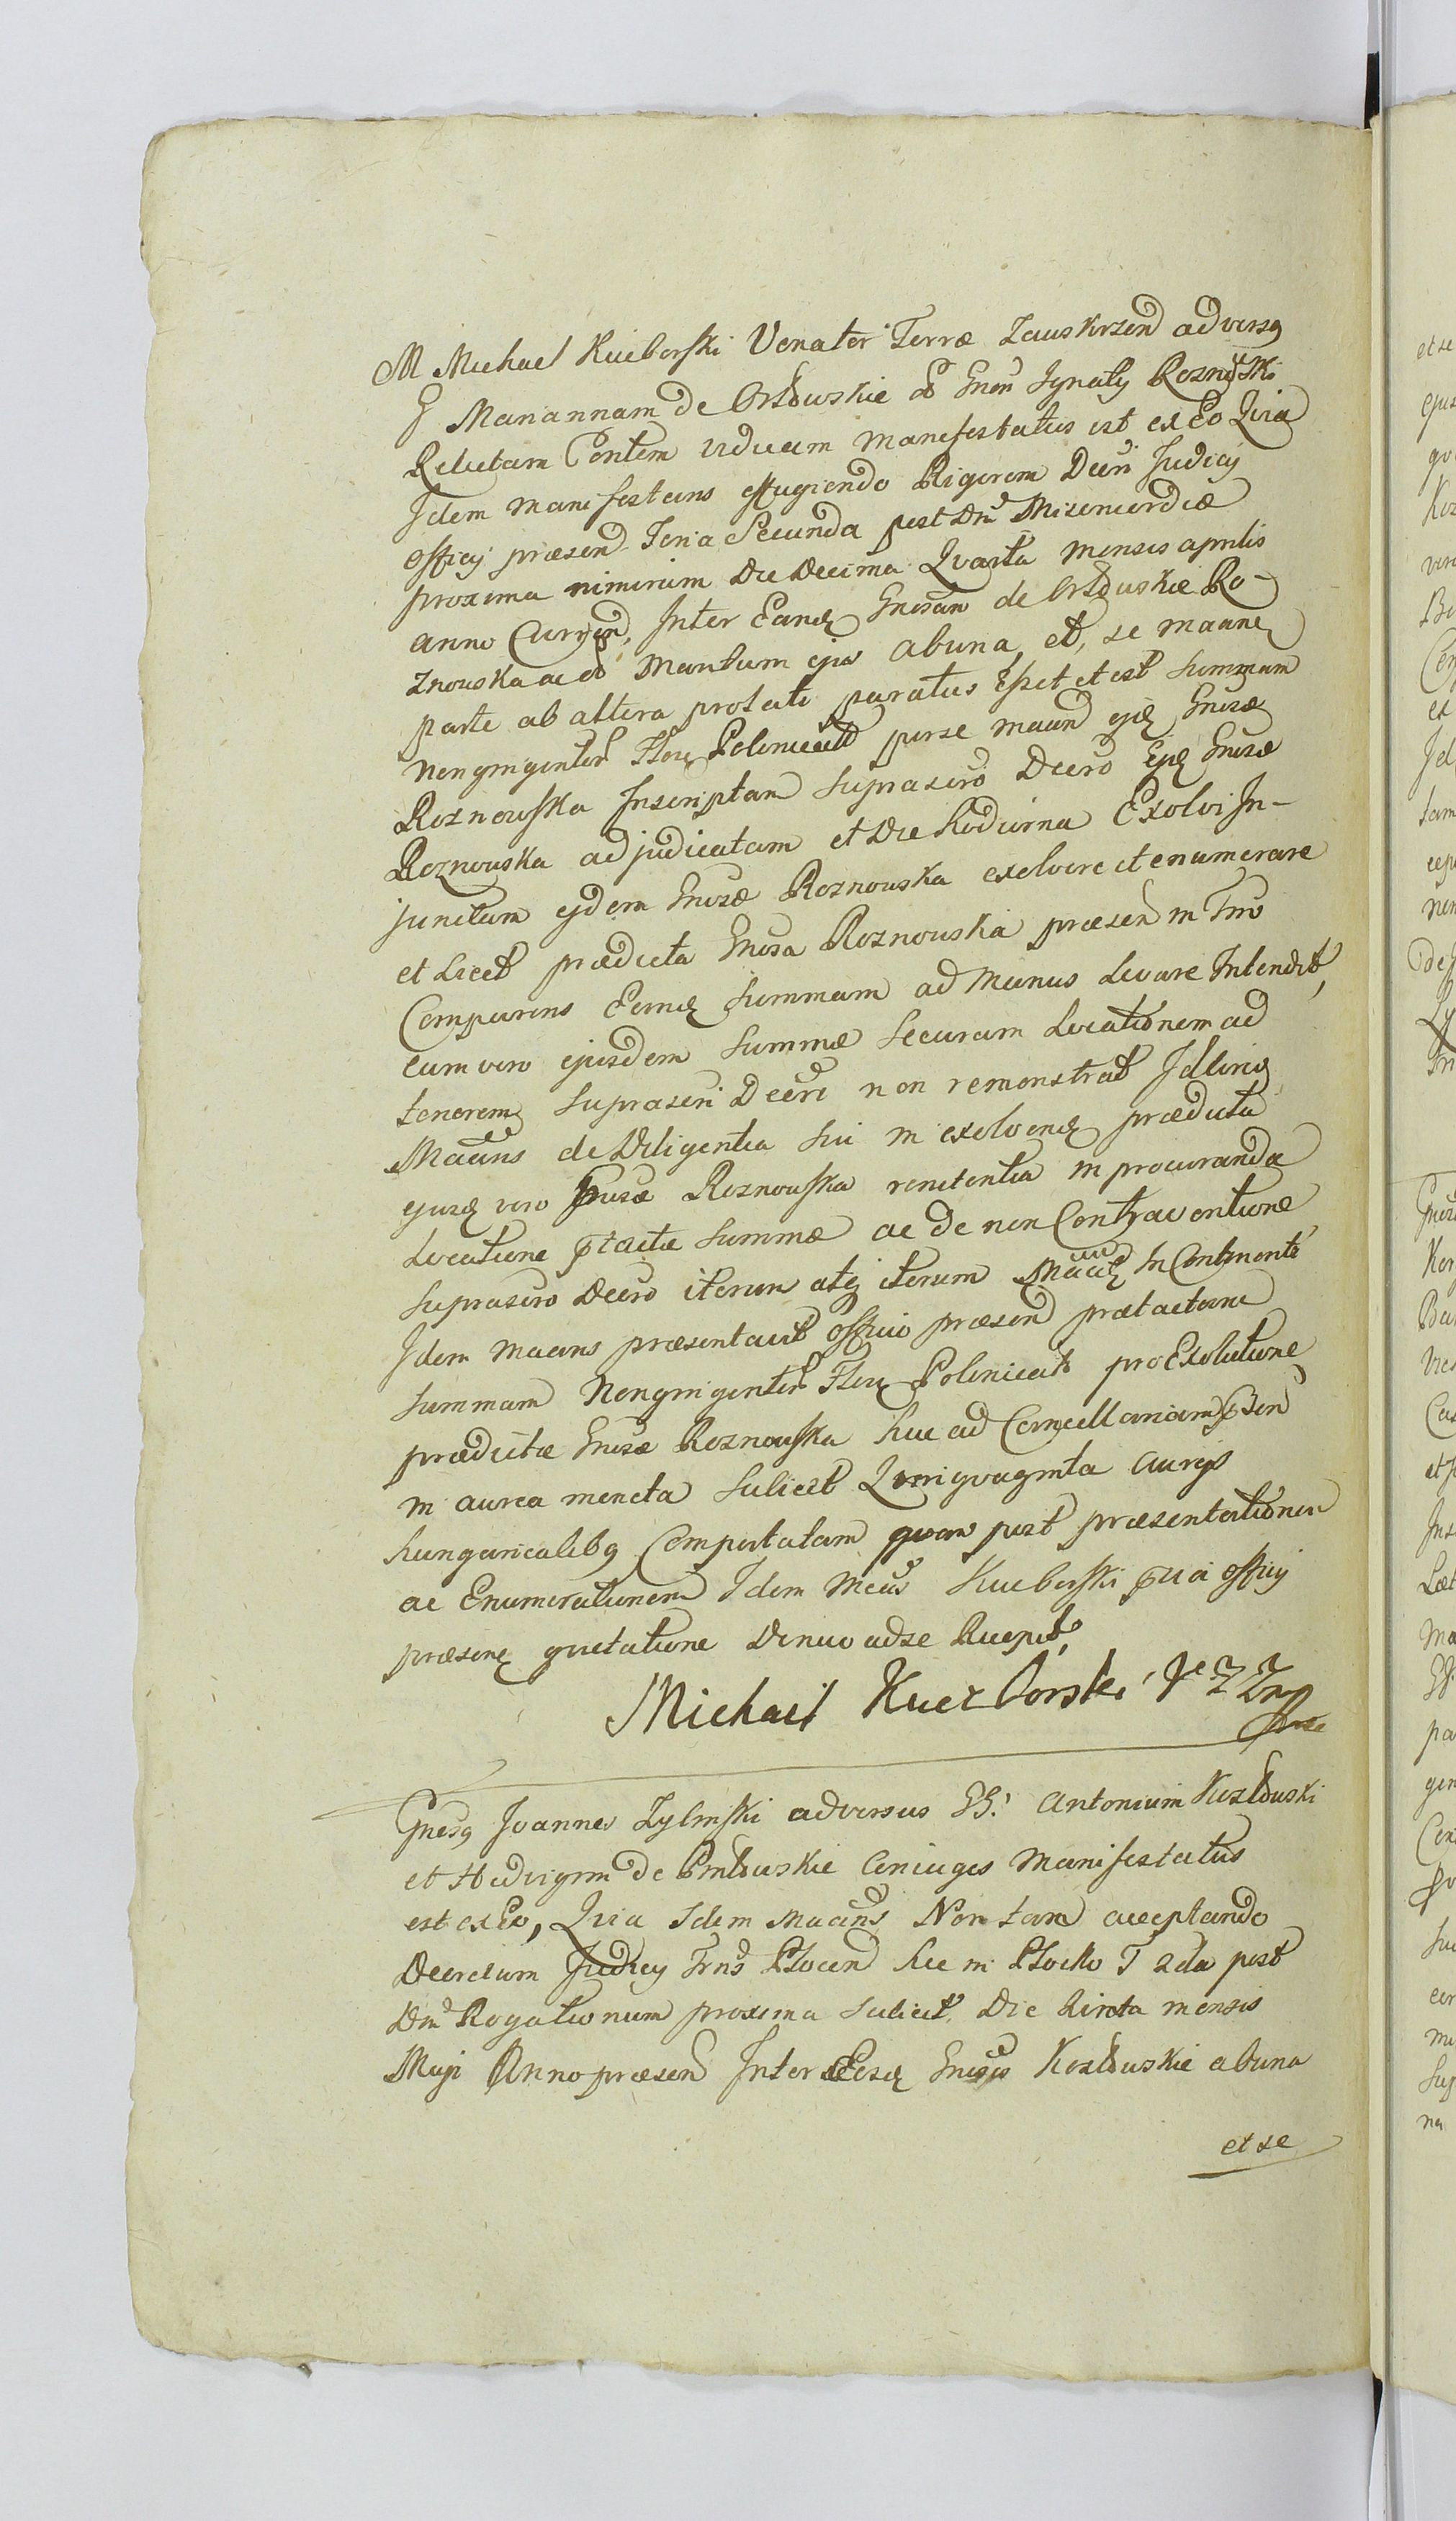 M Michael Kuczborski Venator Terræ Zauskrzen adversq
G Mariannam de Orłowskie Gnsi Ignatij Roznowski
Relictam Contem viduam manifestatus est ex Eo Qvia
Idem manifestans effugiendo Rigorem Decri Judicij
officij præsen Feria Secunda post Dm Misericordiæ
proxima nimirum Die Decima Qvarta mensis aprilis
anno Curren, Inter Eand Gnosam de Orłowskie Ro-
znowska ac Maritum ejus abuna, et, se maane
parte ab altera prolati paratus Esset et est summam
Nongingentor Flor Polonicad per se maan ejd Gnosæ
Roznowska Inscriptam suprascro Decro Ejd Gnosæ
Roznowska adjudicatam et Die hodierna Exolvi In-
junctam ejdem Gnosæ Roznowska exolvere et enumerare
et Licet prædicta Gnosa Roznowska præsen in Tmo
Comparens Eand summam ad Manus Levare Intendit,
cum vero ejusdem summæ securam Locationem ad
tenorem suprascri Decri non remonstrat Idcirco
Maans de Diligentia sui in exolvend prædicta
ejusd vero Gnosæ Roznowska renitentia in procuranda
Locatione ptactæ summæ ac de non Contraventione
suprascro Decro iterum atq iterum Maand In Continenti
Idem maans præsentavit officio præsen prætactam
summam Nongingentor Flor Polonicat pro Exolutione
prædictæ Gnosæ Roznowska huc ad Cancellariam Psen
in aurea moneta scilicet Qvinqvaginta aureis
hungaricalibq Comportatam quam post præsentationem
ac Enumerationem Idem Mcus Kuczborski qua officij
præsen quietatione Denuo ad se Recepit,
Michael Kuczborski
Gnosq Joannes Zylinski adversus GG. Antonium Kozłowski
et Hedvigim de Pniłowskie Coniuges Manifestatus
est ex Eo, Qvia Idem Maans Non tam acceptando
Decretum Judicij Trns Płocen hic in Płocko F 2da post
Dm Rogationum proxima scilicet Die Qinta mensis
Maji Anno præsen Inter Eosd Gnosos Kozłowskie abuna
et se